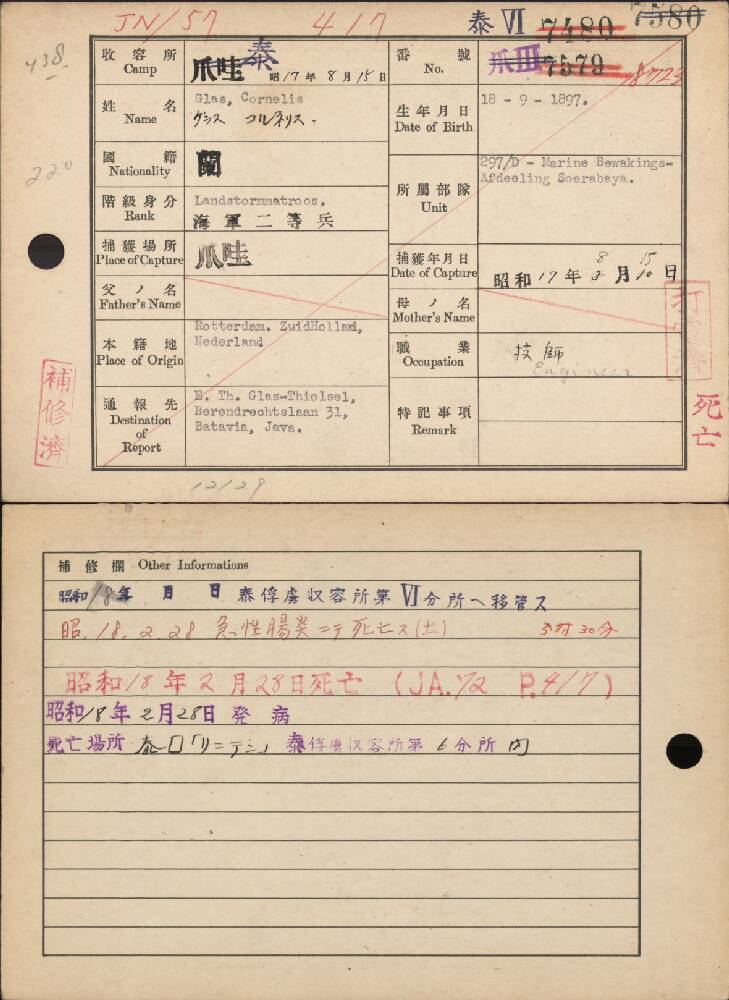 JN/57 417 泰VI 7480 7580
438
220
收容所 Camp 爪哇 泰 昭17年8月15日
番號 No. 爪III 7579 18723
姓名 Name Glas, Cornelis
グラス コルネリス.
生年月日 Date of Birth 18 - 9 - 1897.
國籍 Nationality 蘭
所屬部隊 Unit 297/D - Marine Bewakings-
Afdeeling Soerabaya.
階級身分 Rank Landstormmatroos.
海軍二等兵
捕獲場所 Place of Capture 爪哇
捕獲年月日 Date of Capture 昭和17年3月10日
8 15
父ノ名 Father's Name
母ノ名 Mother's Name
本籍地 Place of Origin Rotterdam. ZuidHolland,
Nederland
職業 Occupation 技師
Engineer
通報先 Destination of Report B. Th. Glas-Thielsel,
Berendrechtslaan 31,
Batavia, Java.
特記事項 Remark
補修濟
死亡
12/29
補修欄 Other Informations
昭和18年 月 日 泰俘虜収容所第VI分所ヘ移管ス
昭.18.2.28 急性腸炎ニテ死亡ス(土) 30分
昭和18年2月28日死亡 (JA.72 P.417)
昭和18年2月28日発病
死亡場所 泰国「リンテン」泰俘虜収容所第6分所内